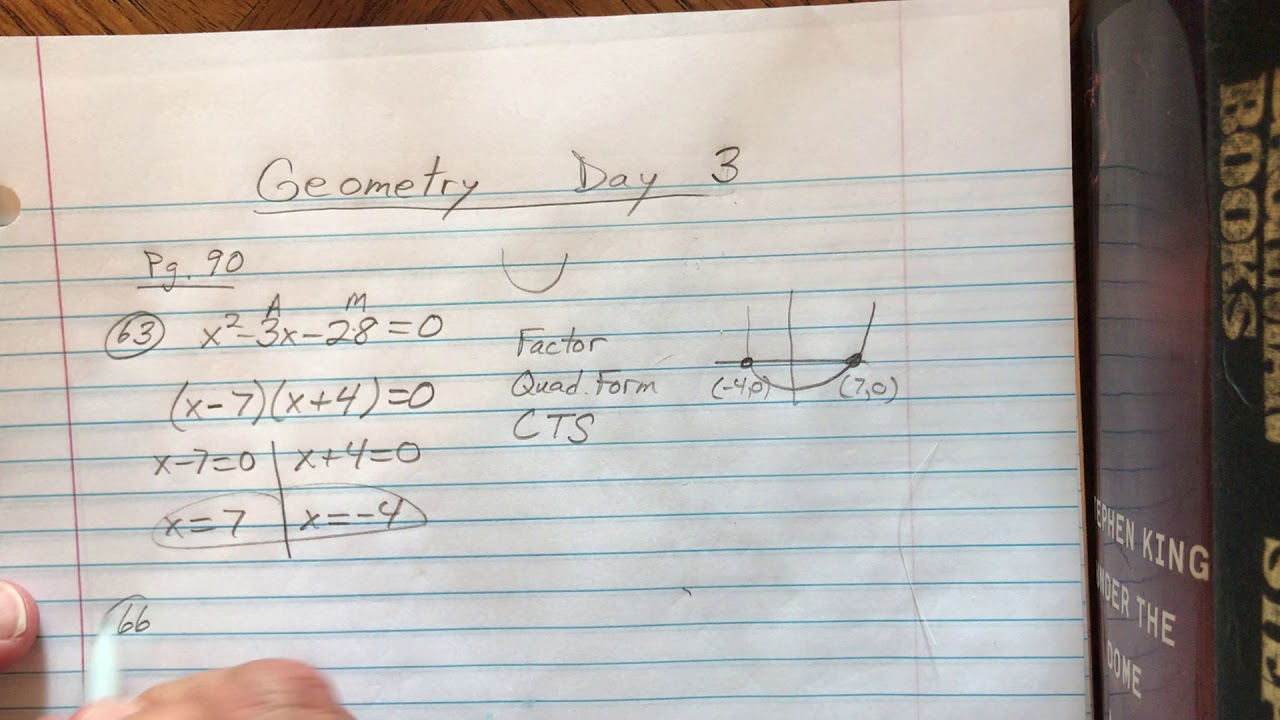 Geometry Day 3
Pg. 90
63 x²-3x-28=0
A M
(x-7)(x+4)=0
x-7=0 x+4=0
x=7 x=-4
Factor
Quad. Form
CTS
(-4,0) (7,0)
66
BOOKS
STEPHEN KING
UNDER THE
DOME